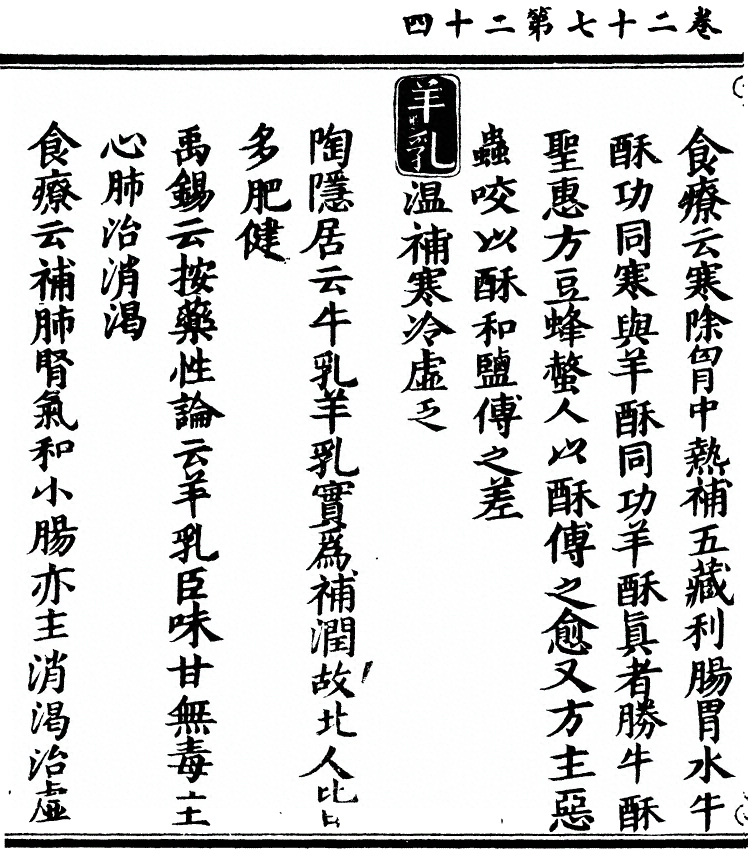 卷二十七第二十四
食療云寒除胷中熱補五藏利腸胃水牛
酥功同寒與羊酥同功羊酥眞者勝牛酥
聖惠方豆蜂螫人以酥傅之愈又方主惡
蟲咬以酥和鹽傅之差
羊乳温補寒冷虛乏
陶隱居云牛乳羊乳實爲補潤故北人皆
多肥健
禹錫云按藥性論云羊乳臣味甘無毒主
心肺治消渴
食療云補肺腎氣和小腸亦主消渴治虛